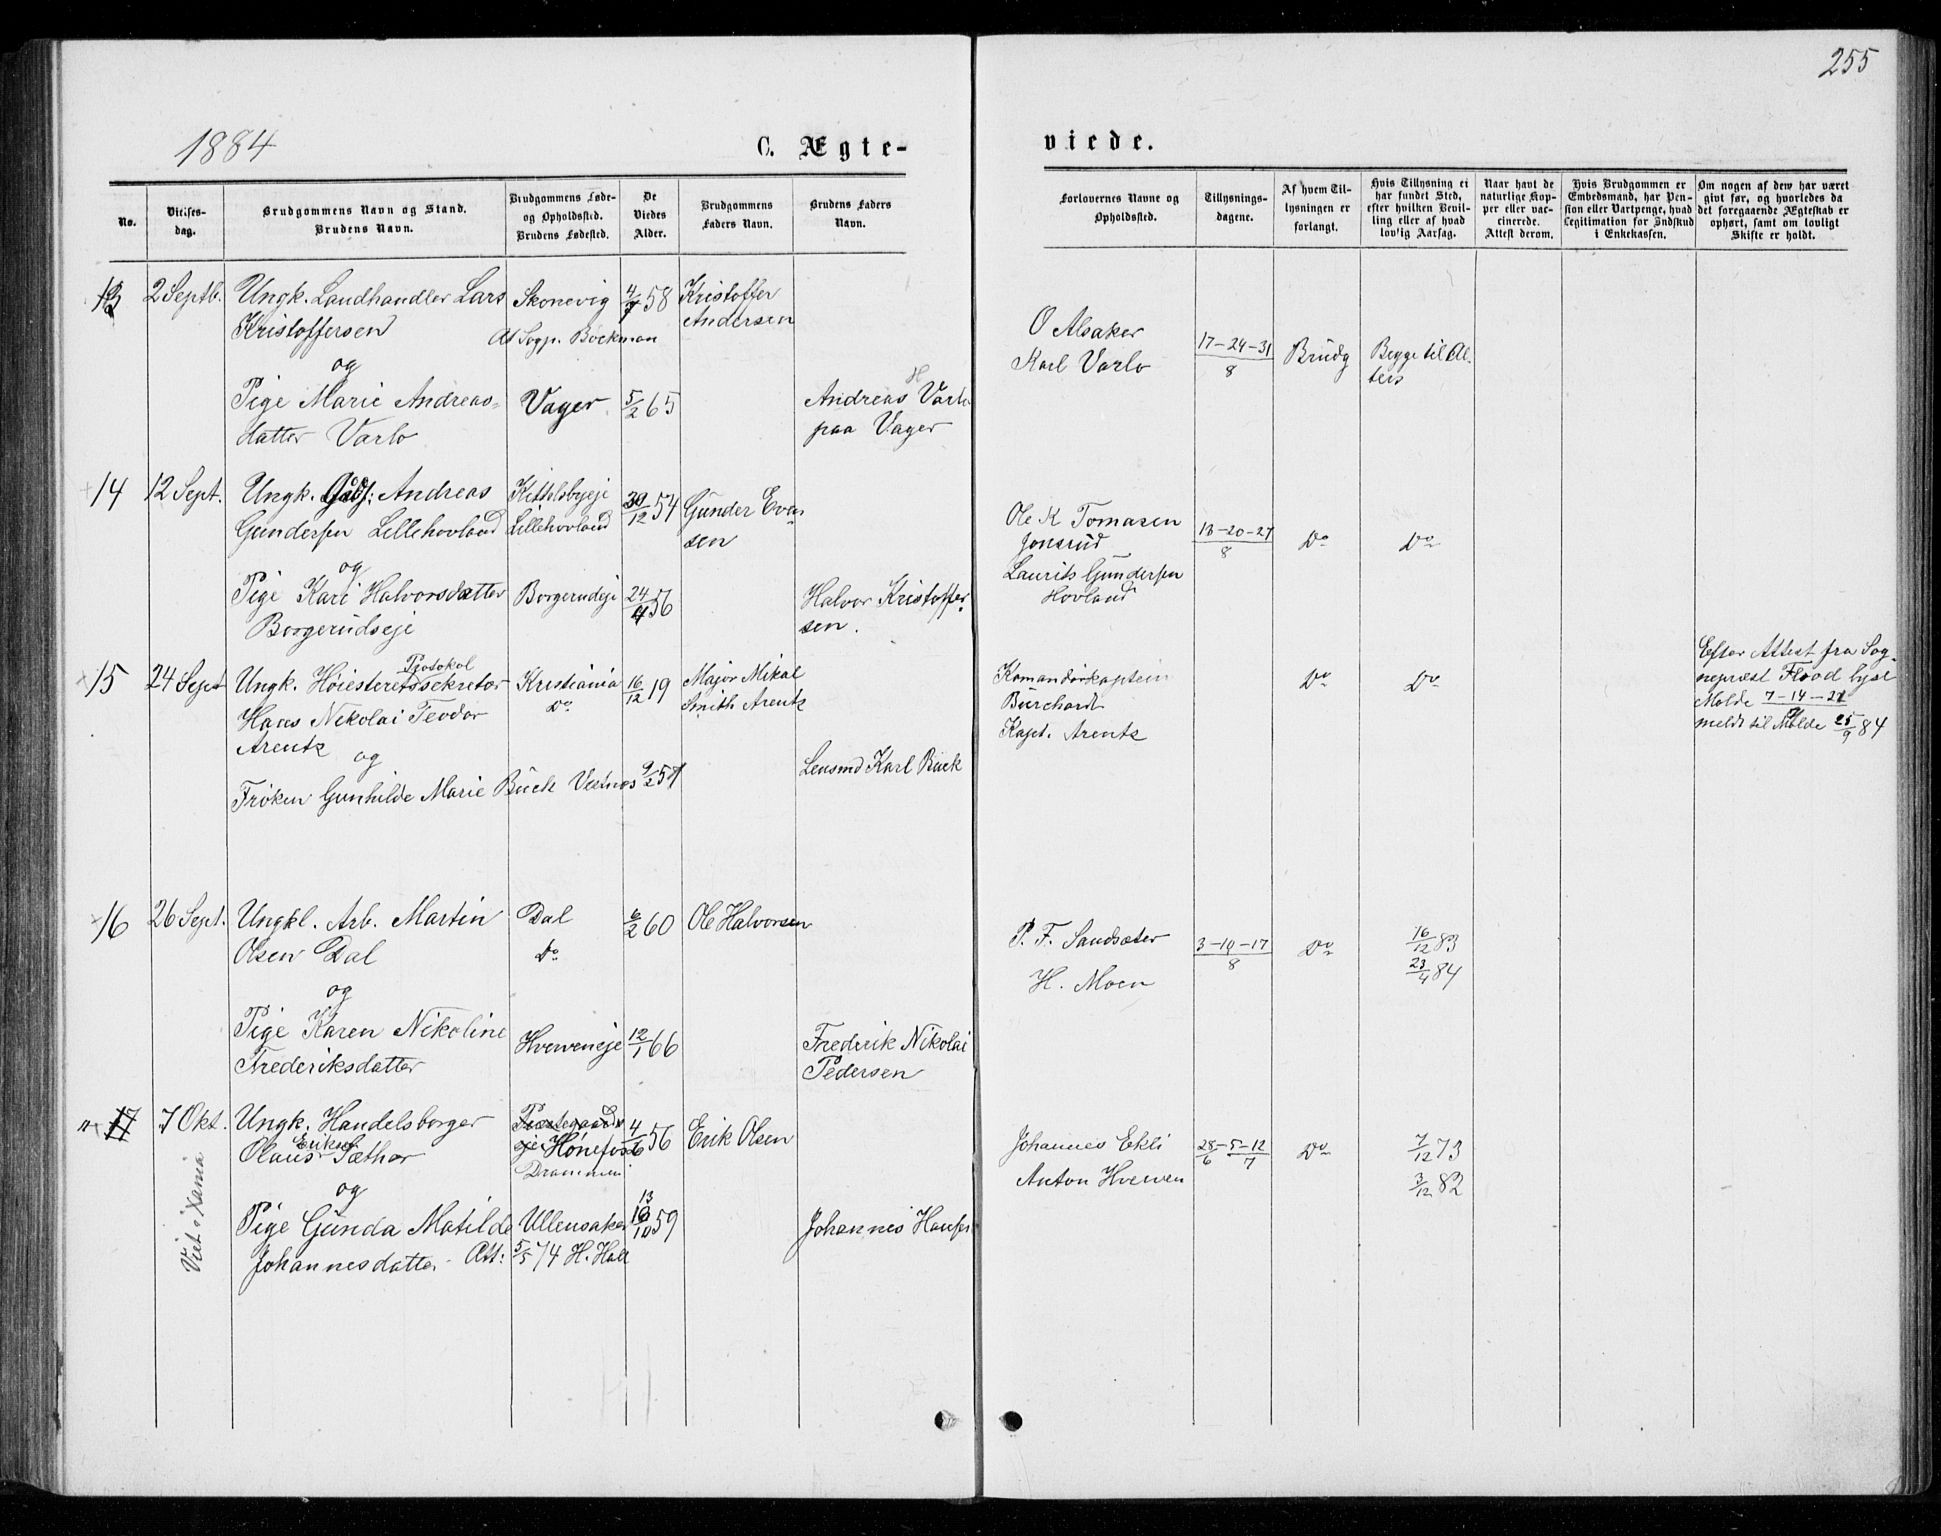 255
1884
C. Ægte-
viede.
No.
Vielses-
dag.
Brudgommens Navn og Stand.
Brudens Navn.
Brudgommens Føde-
og Opholdssted.
Brudens Fødested.
De
Viedes
Alder.
Brudgommens
Faders Navn.
Brudens Faders
Navn.
Forlovernes Navne og
Opholdssted.
Tillysnings-
dagene.
Af hvem Til-
lysningen er
forlangt.
Hvis Tillysning ei
har fundet Sted,
efter hvilken Bevil-
ling eller af hvad
lovlig Aarsag.
Naar havt de
naturlige Kop-
per eller vac-
cinerede.
Attest derom.
Hvis Brudgommen er
Embedsmand, har Pen-
sion eller Vartpenge, hvad
Legitimation for Indskud
i Enkekassen.
Om nogen af dem har været
givt før, og hvorledes da
det foregaaende Ægteskab er
ophørt, samt om lovligt
Skifte er holdt.
13 2 Septb. Ungk. Landhandler Lars Skonevig 4/7 58 Kristoffer
Kristoffersen Af Sogp. Böckman Andersen
og
Pige Marie Andreas- Vager 5/2 65 Andreas H Varlo
datter Varlo paa Vager
O Alsaker
Karl Varlo 17-24-31/8 Brudg Begge til Al-
ters
14 12 Sept. Ungk. Andreas Kittelsbyeje 30/12 54 Gunder Even-
Gundersen Lillehovland Lillehovland sen
og
Pige Kari Halvorsdatter Borgerudeje 24/4 56 Halvor Kristoffer-
Borgerudseje sen.
Ole K Tomasen 13-20-27/8 Do Do
Jonsrud
Laurits Gundersen
Hovland
15 24 Sept Ungk. Høiesteretsprotokolsekretær Kristiania 16/12 19 Major Mikal
Hans Nikolai Teodor Do Smith Arentz
Arentz
og
Frøken Gunhilde Marie Buck Vestnes 9/2 57 Lensmd Karl Buck
Komandørkaptein Do Do
Burchardt
Kapt. Arentz
Efter Attest fra Sog-
nepræst Flood lyst
Molde 7-14-21
meldt til Molde 25/9 84
16 26 Sept. Ungkl. Arb. Martin Dal 6/2 60 Ole Halvorsen
Olsen Dal Do
og
Pige Karen Nikoline Hverveneje 12/1 66 Frederik Nikolai
Frederiksdatter Pedersen
P. F. Sandsæter 3-10-17/8 Do 16/12 83
H. Moen 23/4 84
17 7 Okt. Ungk. Handelsborger Præstegaards- 4/6 56 Erik Olsen
Olaus Eriks. Sæther eje Hønefos
Drammen
og
Pige Gunda Matilde Ullensaker 13/10 59 Johannes Hansen
Johannesdatter - Att: 5/5 74 H. Hall
Viet i Xania
Johannes Ekli 28/6-5-12/7 Do 7/12 73
Anton Hverven 3/12 82